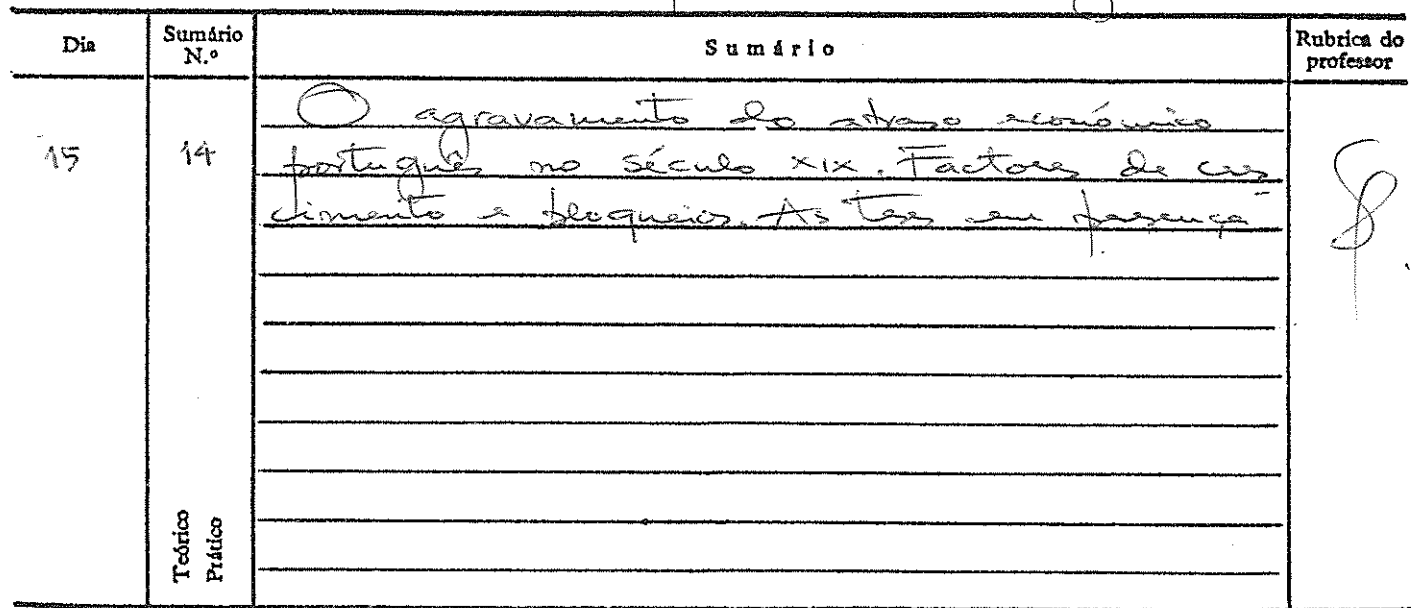 Dia Sumário N.º Sumário Rubrica do professor
15 14
O agravamento do atraso económico
português no século XIX. Factores de cres
cimento e bloqueios. As teses em presença
Teórico
Prático